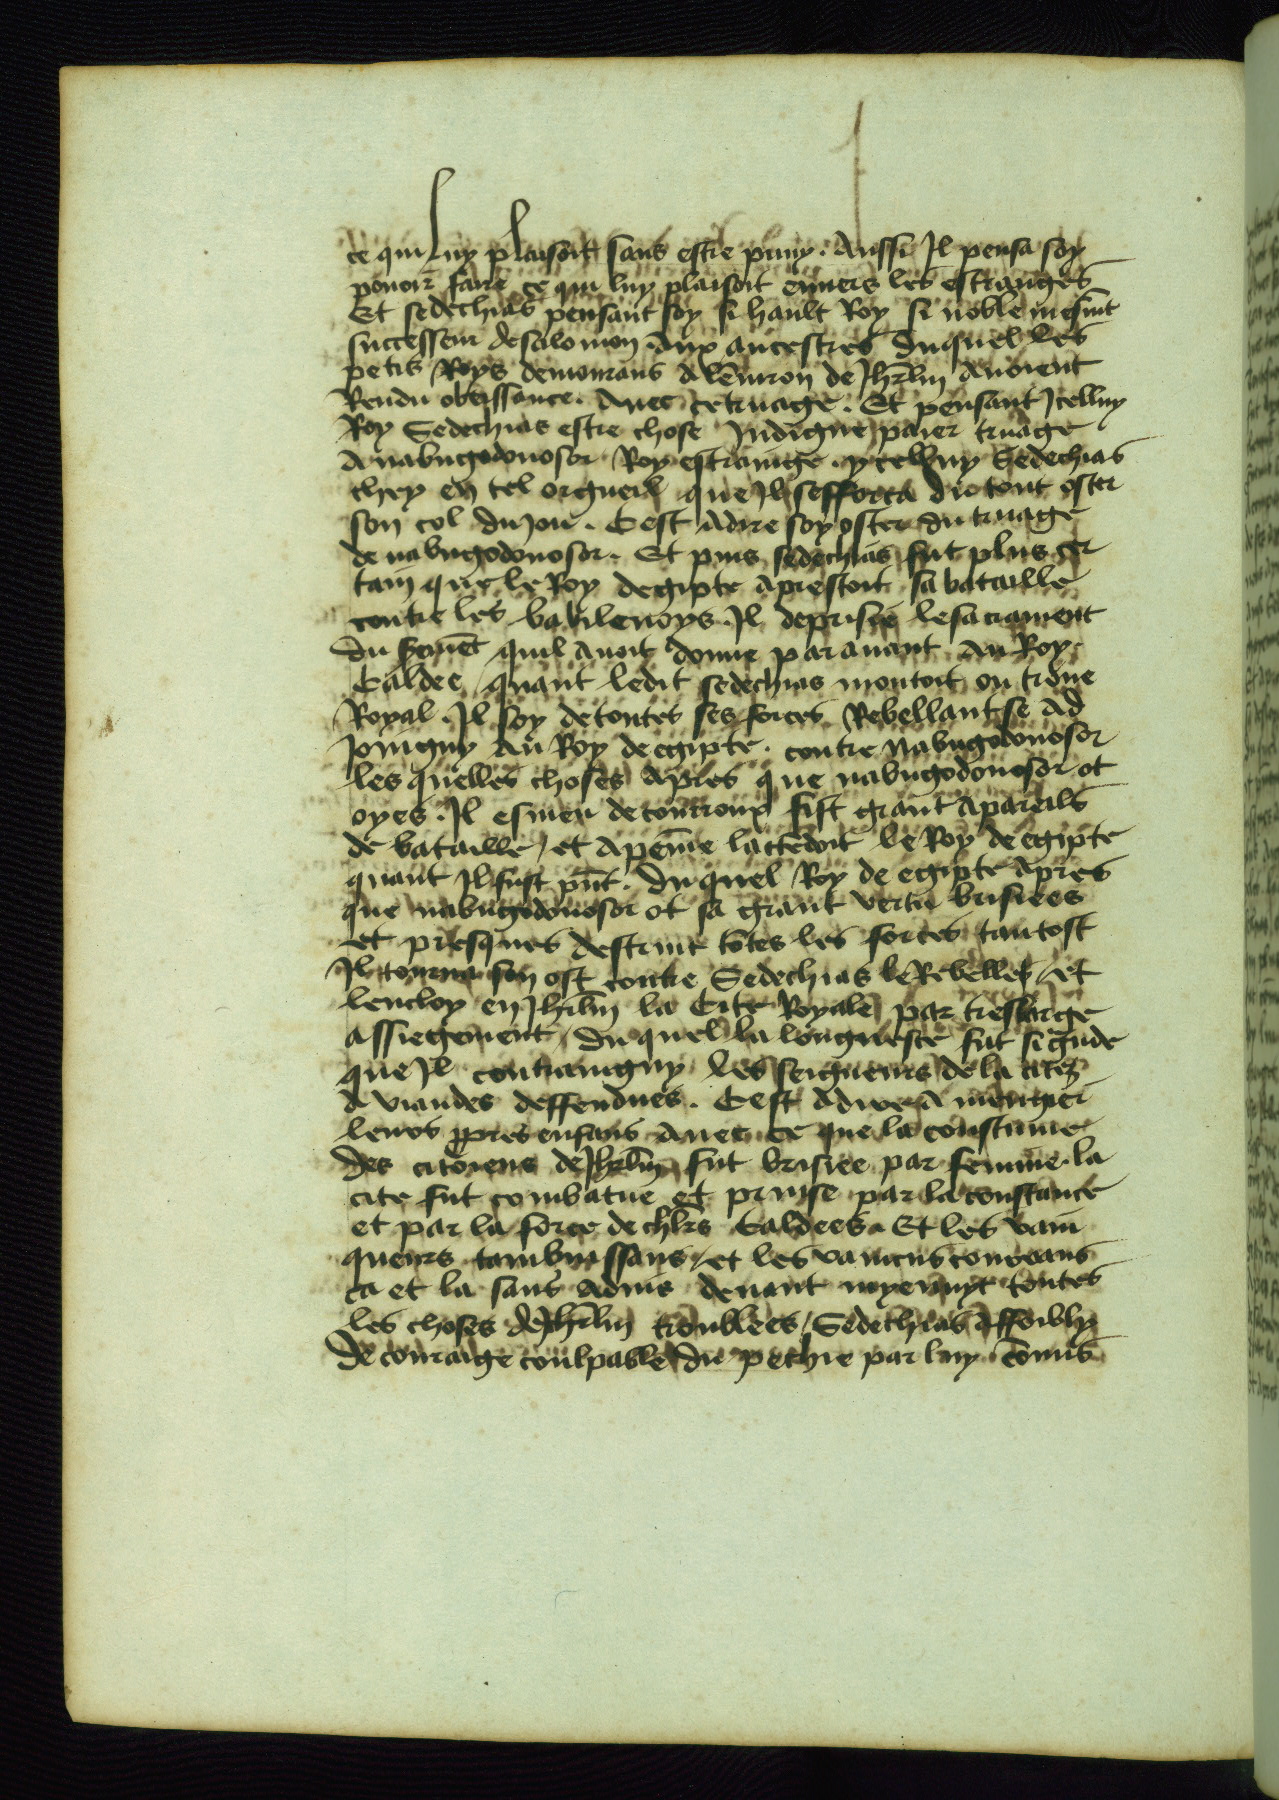 ce qui luy plaisoit sans estre puny. Aussi Il pensa soy
pouoir faire ce qui luy plaisoit enuers les estranges
Et sedechias pensant soy si hault Roy si noble mesmt
successeur de salomon. Aux ancestres duquel les
petis Roys demourans a lenuiron de Jhrlm Auoient
Rendu obeissance. Auec ce truage. Et pensant Jcelluy
Roy Sedechias estre chose Indigne paier truage
A nabugodonosor Roy estrange. ycelluy Sedechias
chey en tel orgueil que Il sefforca du tout oster
son col du jou. Cest adire soy oster du truage
de nabugodonosor. Et puis sedechias fut plus cer
tain que le Roy degipte aprestoit sa bataille
contre les babilenoys. Il deprisie le sacrament
du sermet quil Auoit donne par auant Au Roy
Caldee quant ledit sedechias montoit ou trone
Royal. Il soy de toutes ses forces Rebellant se Ad
joingny Au Roy de egipte. contre Nabugodonosor
les quelles choses Apres que nabugodonosor ot
oyes. Il esmeu de courroux fist grant apareils
de bataille / et Apeine lattedoit le Roy de egipte
quant Il fust pnt. du quel Roy de egipte Apres
que nabugodonosor ot sa grant vertu brisiees
et presques destruit totes les forces tantost
Il tourna son ost contre Sedechias le Rebelle / et
lencloy en Jhrlm la Cite Royale par tres large
assiegement / du quel la longuesce fut si grade
que Il contraingny les seigneurs de la cite
A viandes deffendues. Cest Adire A mengier
leurs ppres enfans Auec ce que la coustume
des citoiens de Jhrlm fut brisiee par femine. la
cite fut combatue et prinse par la constance
et par la force de chlrs Caldees. Et les vain
queurs tambuissans / et les vaincus courans
ca et la sans aduis deuant myenuyt toutes
les choses de Jhrlm troublees / Sedechias Affoibly
de couraige coulpable du pechie par luy comis